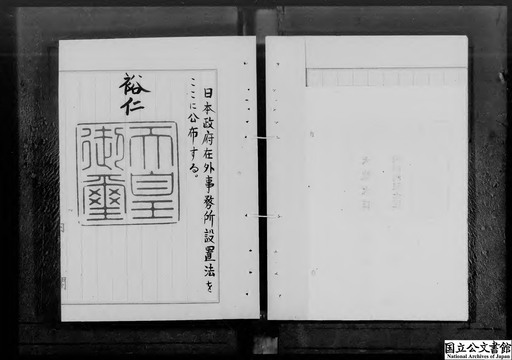 日本政府在外事務所設置法を
ここに公布する。
裕仁
天皇
御璽
国立公文書館
National Archives of Japan